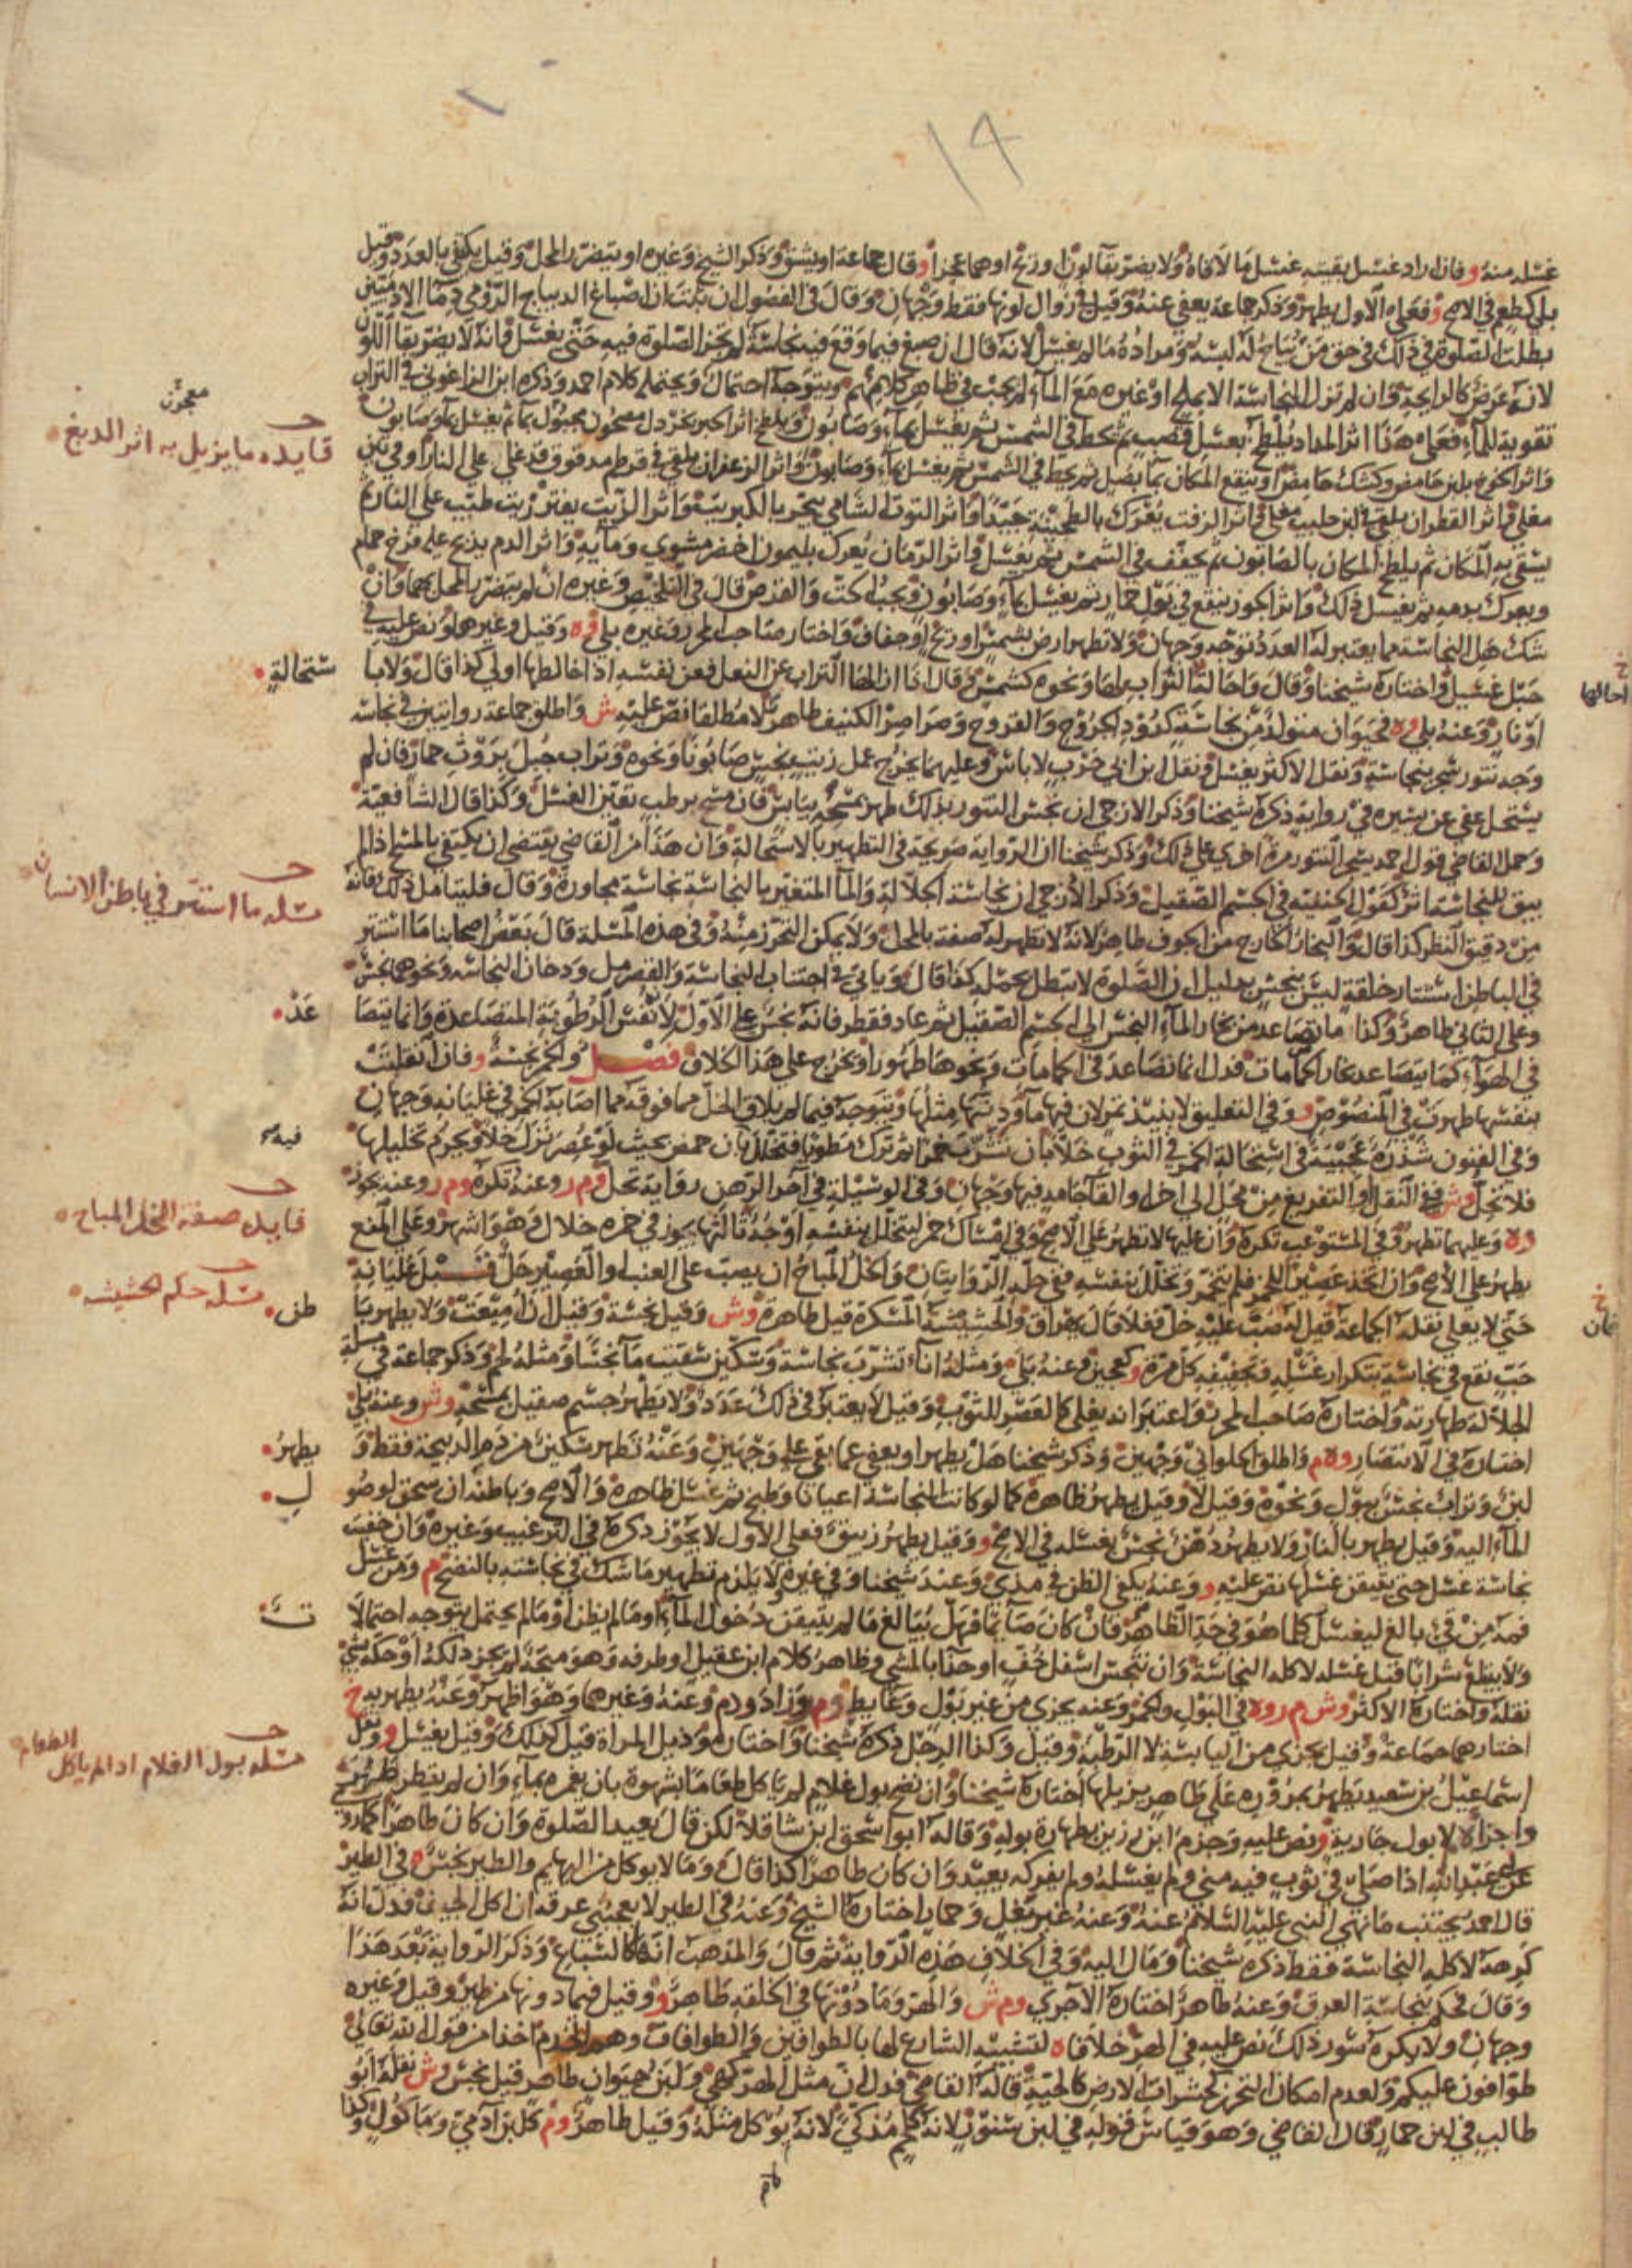 ١٩
غسله منه و فان اراد غسل بقيته غسل ما لاقاه ولا يضر بقا لون او ريح او هما عجزا و قال جماعة او يشق وذكر الشيخ وغيره او يتضرر المحل وقيل يكفي بالعدد وقيل
بلى كطعم في الاصح و فعلى الاول يطهر وذكر جماعة يعفى عنه وقيل في زوال لونها فقط وجهان وقال في الفصول ان ثبت ان اصباغ الديباج الرومي في دما الادميين
بطلت الصلوة في ذلك في حق من يباح له لبسه ومراده ما لم يغسل لانه قال ان صبغ فيما وقع فيه نجاسة لم يجز الصلوة فيه حتى يغسل فانه لا يضر بقا اللون
لانه عرض كالرايحة وان لم تزل النجاسة الا بملح او غيره مع الماء لم يجب في ظاهر كلامهم ويتوجه احتمال ويحتمله كلام احمد وذكره ابن الزاغوني في التراب
تقوية للماء فعلى هذا اثر المداد يلطخ بعسل قصب ثم يحط في الشمس ثم يغسل بماء وصابون ويلطخ اثر الحبر بخردل معجون مجبول بماء ثم يغسل بماء وصابون
واثر الخوخ بلبن حامض وكشك حامض او ينقع المكان بما بصل ثم يحط في الشمس ثم يغسل بماء وصابون واثر الزعفران يلقى في قرطم مدقوق قد غلي على النار او في تبن
مغلي واثر القطران يلقى في لبن حليب مغلي واثر الزفت يعرك بالطحينة جيدا واثر التوت الشامي يبخر بالكبريت واثر الزيت يفتر زيت طيب على النار ثم
يسقى به المكان ثم يلطخ المكان بالصابون ثم يجفف في الشمس ثم يغسل واثر الرمان يعرك بليمون اخضر مشوي ومايه واثر الدم يذبح عليه فرخ حمام
ويعرك بدمه ثم يغسل ذلك واثر الجوز ينقع في بول حمار ثم يغسل بماء وصابون ويجب الحت والقرص قال في التلخيص وغيره ان لم يتضرر المحل بهما وان
شك هل النجاسة مما يعتبر له العدد توجه وجهان ولا تطهر ارض بشمس او ريح او جفاف واختار صاحب المحرر وغيره بلى و ه وقيل وغيرها ونص عليه في
حبل غسيل واختاره شيخنا وقال واحالة التراب لها ونحوه كشمس وقال اذا ازالها التراب عن النعل فعن نفسه اذا خالطها اولى كذا قال ولا با ستحالة
او نار وعنه بلى و ه فحيوان متولد من نجاسة كدود الجروح والقروح وصراصر الكنيف طاهر لا مطلقا نص عليه ش واطلق جماعة روايتين في نجاسة
وجه تنور سجر بنجاسة ونقل الاكثر يغسل ونقل ابن ابي حرب لا باس وعليهما يخرج عمل زيت نجس صابونا ونحوه وتراب جبل بروث حمار فان لم
يستحل عفي عن يسيره في رواية ذكره شيخنا وذكر الازجي ان نجس التنور بذلك طهر بمسحه بيابس فان مسح برطب تعين الغسل وكذا قال الشافعية
وحمل القاضي قول احمد يسجر التنور مرة اخرى على ذلك وذكر شيخنا ان الرواية صريحة في التطهير بالاستحالة وان هذا من القاضي يقتضي ان يكتفي بالمسح اذا لم
يبق للنجاسة اثر كقول الحنفية في الجسم الصقيل وذكر الازجي ان نجاسة الجلالة والماء المتغير بالنجاسة نجاسة مجاورة وقال فليتامل ذلك فانه
من دقيق النظر كذا قال والبخار الخارج من الجوف طاهر لانه لا تظهر له صفة بالمحل ولا يمكن التحرز منه وفي هذه المسلة قال بعض اصحابنا ما استتر
في الباطن استتار خلقة ليس بنجس بدليل ان الصلوة لا تبطل بحمله كذا قال وياتي في اجتناب النجاسة والقصرمل ودخان النجاسة ونحوها نجس
وعلى الثاني طاهر وكذا ما تصاعد من بخار الماء النجس الى الجسم الصقيل ثم عاد فقطر فانه نجس على الاول لانه نفس الرطوبة المتصاعدة وانما يتصا عد
في الهواء كما يتصاعد بخار الحمامات فدل انما تصاعد في الحمامات ونحوها طهور او يخرج على هذا الخلاف فصل والخمر نجسة و فان انقلبت
بنفسها طهرت في المنصوص و وفي التعليق لا نبيذ تمر لان فيها ماء ودنها مثلها ويتوجه فيما لم يلاق الخل مما فوقه مما اصابه الخمر في غليانه وجهان
وفي الفنون شذرة عجيبة في استحالة الخمر في الثوب خلا بان تشرب خمرا ثم ترك مطويا فتخلل فيه بان حمض بحيث لو عصر نزل خلا ويحرم تخليلها
فلا تحل وش في النقل او التفريغ من محل الى اخر او القا جامد فيها وجهان وفي الوسيلة في اخر الرهن رواية تحل وم ر وعنه تكره وم ر وعنه يجوز
و ه وعليهما تطهر وفي المستوعب تكره وان عليها لا تطهر على الاصح وفي امساك خمر ليتخلل بنفسه اوجه ثالثها يجوز في خمرة خلال وهو اشهر وعلى المنع
يطهر على الاصح وان اتخذ عصيرا للخمر فلم يتخمر وتخلل بنفسه ففي حله الروايتان والخل المباح ان يصب على العنب او العصير خل قبل غليانه
حتى لا يغلي نقله الجماعة قيل له صب عليه خل فغلا قال يهراق والحشيشة المسكرة قيل طاهرة وش وقيل نجسة وقيل ان اميعت ولا يطهر با طن
حب نقع في نجاسة بتكرار غسله وتجفيفه كل مرة وكعجين وعنه بلى ومثله اناء تشرب نجاسة وسكين سقيت ماء نجسا ومثله لحم وذكر جماعة في مسلة
الجلالة طهارته واختاره صاحب المحرر واعتبر انه يغلي كالعصر للثوب وقيل لا يعتبر في ذلك عدد ولا يطهر جسم صقيل بمسحه وش وعنه بلى
اختاره في الانتصار و ه م واطلق الحلواني وجهين وذكر شيخنا هل يطهر او يعفى عما بقي على وجهين وعنه تطهر سكين من دم الذبيحة فقط و يطهر
لبن وتراب نجس ببول ونحوه وقيل لا وقيل يطهر ظاهره كما لو كانت النجاسة اعيانا وطبخ ثم غسل ظاهره والاصح وباطنه ان سحق لوصو ل
الماء اليه وقيل يطهر بالنار ولا يطهر دهن نجس بغسله في الاصح و وقيل يطهر زيبق فعلى الاول لا يجوز ذكره في الترغيب وغيره وان خفيت
نجاسة غسل حتى يتيقن غسلها نص عليه و وعنه يكفي الظن في مذي وعند شيخنا وفي غيره ولا يلزم تطهير ما شك في نجاسته بالنضح م ومن غسل
فمه من قي بالغ ليغسل كلما هو في حد الظاهر فان كان صايما فهل يبالغ ما لم يتيقن دخول الماء او ما لم يظن او ما لم يحتمل يتوجه احتمالا ت
ولا يبلع شرابا قبل غسله لاكله النجاسة وان تنجس اسفل خف او حذا بالمشي وظاهر كلام ابن عقيل او طرفه وهو متجه لم يجز دلكه او حكه بشي
نقله واختاره الاكثر وش م ر و ه في البول والخمر وعنه يجزي من غير بول وغايط وم وزاد ودم وعنه وغيرها وهو اظهر وعنه يطهر به خ
اختارهما جماعة وقيل يجزي من اليابسة لا الرطبة وقيل وكذا الرجل ذكره شيخنا واختاره وذيل المراة قيل كذلك وقيل يغسل و ونقل
اسماعيل بن سعيد يطهر بمروره على طاهر يزيلها اختاره شيخنا وان نضح بول غلام لم ياكل طعاما بشهوة بان يغمره بماء وان لم يقطر طهر ش
واجزاه لا بول جارية ونص عليه وجزم ابن رزين بطهارة بوله وقاله ابو اسحق ابن شاقلا لكن قال يعيد الصلوة وان كان طاهرا كما روي
عن عبد الله اذا صلى في ثوب فيه مني ولم يغسله ولم يفركه يعيد وان كان طاهرا كذا قال وما لا يوكل من البهايم والطير نجس في الطير
قال احمد يجتنب ما نهى النبي عليه السلام عنه وعنه غير بغل وحمار اختاره الشيخ وعنه في الطير لا يعجبني عرقه ان اكل الجيف فدل انه
كرهه لاكله النجاسة فقط ذكره شيخنا ومال اليه وفي الخلاف هذه الرواية ثم قال والمذهب انها كالسباع وذكر الرواية بعد هذا
وقال فحكم بنجاسة العرق وعنه طاهر اختاره الاجري وم ش والهر وما دونها في الخلقة طاهر و وقيل فيما دونها من طير وقيل وغيره
وجهان ولا يكره سور ذلك نص عليه في الهر خلافا ه لتشبيه الشارع لها بالطوافين والطوافات وهم الخدم اخذا من قوله تعالى
طوافون عليكم ولعدم امكان التحرز كحشرات الارض كالحية قاله القاضي فدل ان مثل الهر كهي ولبن حيوان طاهر قيل نجس وش نقله ابو
طالب في لبن حمار قال القاضي وهو قياس قوله في لبن سنور لانه كلحم مذكى لانه يوكل مثله وقيل طاهر وم كلبن ادمي وماكول وكذا
معجون
فايده ما يزيل به اثر الدبغ
خ
احالتها
مسله ما استتر في باطن الانسان
فايده صفة الخل المباح
مسله حكم الحشيشه
خ
مسله بول الغلام اذا لم ياكل الطعام